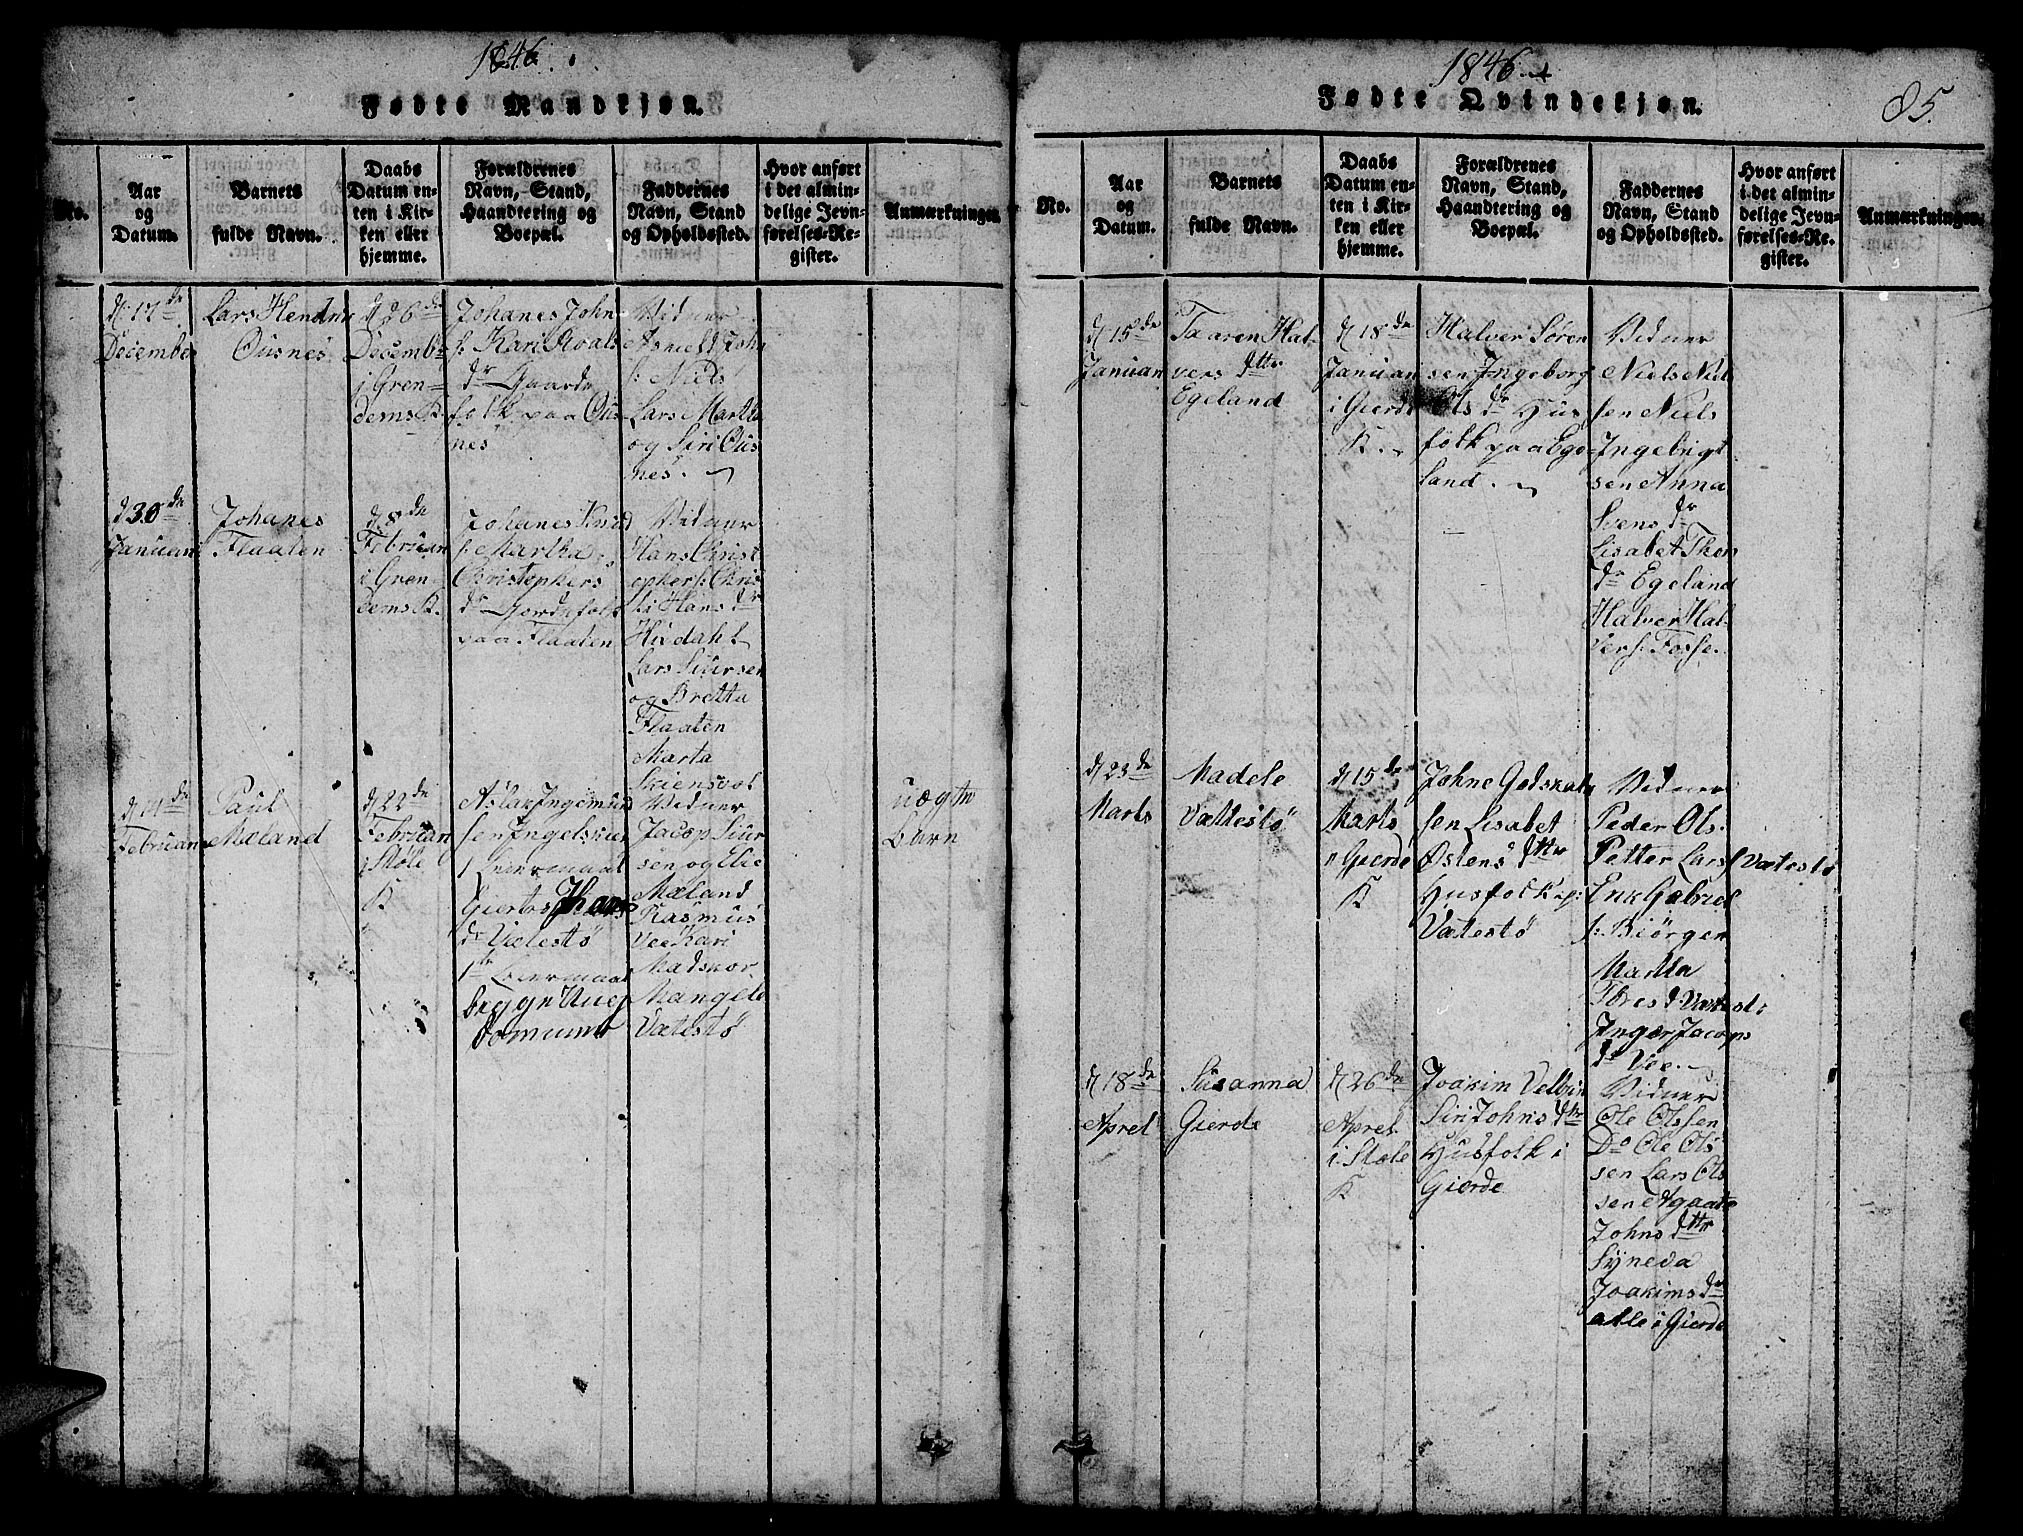 1846
Fødte Mandkjøn.
No.
Aar
og
Datum.
Barnets
fulde Navn.
Daabs
Datum en-
ten i Kir-
ken eller
hjemme.
Forældrenes
Navn, Stand,
Haandtering og
Boepæl.
Faddernes
Navn, Stand
og Opholdssted.
Hvor anført
i det almin-
delige Jevn-
førelses-Re-
gister.
Anmærkninger.
d 17de
December
Lars
Ousnes
d 26de
Decembr
i Gren-
dems K
Johanes John
s: Kari Roals
dr Gaarde
folk paa Ous
nes
Vidner
John
s: Niels
Lars Martha
og Siri Ous
nes.
d 30de
Januari
Johanes
Flaaten
d 8de
Februari
i Gren-
dems K.
Johanes Knud
s: Martha
Christophers
dr Gordefolk
paa Flaaten
Vidner
Hans Christ
opher s: Chris
ti Hans dr
Hivdahl
Lars Siursen
og Bretta
Flaaten
Marta
d 14de
Februari
Paul
Mæland
d 22de
Februari
i Støle
K
Aslak Ingemund
sen
1 Leiermaal
dr Vætestö
1te Leiermaal
begge
Vidner
Jacop Siur
sen og Elie
Mæland
Rasmus
Vee Kari
Vætestö
uægte
barn
1846
Fødte Qvindekjøn.
85.
No.
Aar
og
Datum.
Barnets
fulde Navn.
Daabs
Datum en-
ten i Kir-
ken eller
hjemme.
Forældrenes
Navn, Stand,
Haandtering og
Boepæl.
Faddernes
Navn, Stand
og Opholdssted.
Hvor anført
i det almin-
delige Jevn-
førelses-Re-
gister.
Anmærkninger.
d 15de
Januari
Taaren Hal
vers dttr
Egeland
d 18de
Januari
i Gierde
K.
Halver Søren
sen Ingeborg
Ols dr Hus
folk paa Ege
land.
Vidner
Niels Niel
sen Niels
Ingebrigt
sen Anna
Svens dr
Lisabet Thor
dr Egeland
Halver Hal
vers: Fosse.
d 23de
Marts
Madele
Vættestö
d 15de
Marts
Gierde
K
Johne Godskalk
sen Lisabet
Østens dttr
Husfolk p:
Vætestö
Vidner
Peder Ols.
Petter Lars s Vætestö
Erik Gabriel
s: Biörgen
Martha
Tores d Vætest:
Inger Jacops
dr Vee.
d 18de
Aprel
Susanna
Gierde
d 26de
Aprel
i Støle
K
Joakim
Siri Johns dttr
Husfolk i
Gierde
Vidner
Ole Olssen
Do Ole Ols
sen Lars Ols
sen Agaate
Johns dttr
Syneva
Joakims dr
alle i Gierde